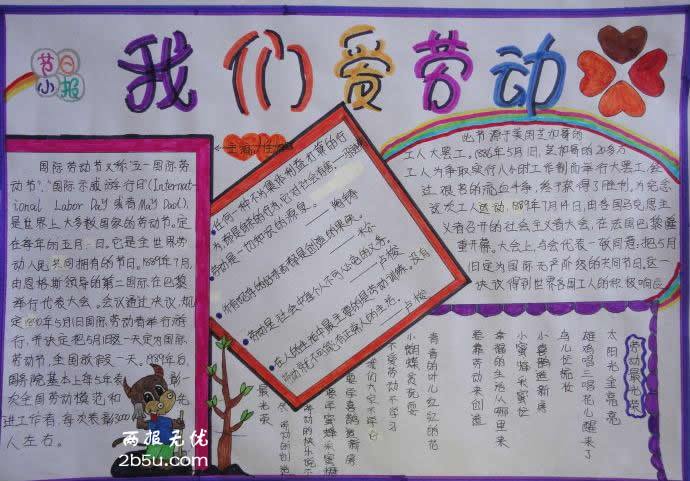 节日
小报
我们爱劳动
国际劳动节又称五一国际劳
动节","国际示威游行日(Internat-
ional Labor Day 或者May Day),
是世界上大多数国家的劳动节。定
在每年的五月一日。它是全世界劳
动人民共同拥有的节日。1889年7月,
由恩格斯领导的第二国际在巴黎
举行代表大会。会议通过决议,规
定1890年5月1日国际劳动者举行游
行,并决定把5月1日这一天定为国际
劳动节。全国放假一天。1989年后,
国务院基本上每5年表彰一
次全国劳动模范和先
进工作者,每次表彰3000
人左右。
任何一种不为集体利益打算的行
为,都是自杀的行为,它对社会有害。
劳动是一切知识的源泉。——陶铸
卢梭
卢梭
此节源于美国芝加哥的
工人大罢工。1886年5月1日,芝加哥的20多万
工人为争取实行八小时工作制而举行大罢工,经
过艰苦的流血斗争,终于获得了胜利。为纪念
这次工人运动,1889年7月14日,由各国马克思主
义者召开的社会主义者大会,在法国巴黎隆
重开幕。大会上,与会代表一致同意:把5月
1日定为国际无产阶级的共同节日。这一
决议得到世界各国工人的积极响应
劳动最光荣
太阳光金亮亮
雄鸡唱三唱
花儿醒来了
鸟儿忙梳妆
小喜鹊造新房
小蜜蜂采蜜忙
幸福的生活从哪里来
要靠劳动来创造
青青的叶儿红红的花
小蝴蝶贪玩耍
不爱劳动不学习
我们大家不学它
要学喜鹊造新房
要学蜜蜂采蜜糖
劳动的快乐说不
劳动的创造
最光荣
两报无优
2b5u.com